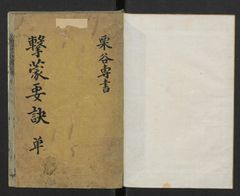 栗谷專書
擊蒙要訣 單